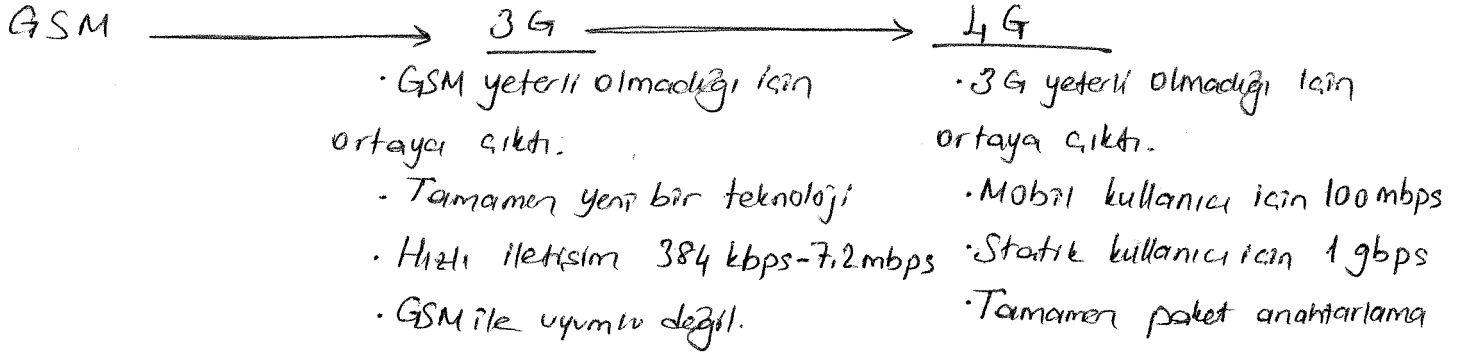 GSM → 3G → 4G
· GSM yeterli olmadığı için
ortaya çıktı.
· Tamamen yeni bir teknoloji
· Hızlı iletişim 384 kbps-7,2mbps
· GSM ile uyumlu değil.
· 3G yeterli olmadığı için
ortaya çıktı.
· Mobil kullanıcı için 100mbps
· Statik kullanıcı için 1 gbps
· Tamamen paket anahtarlama